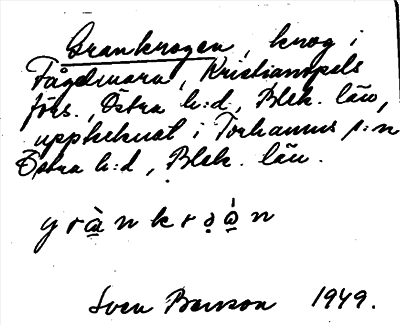 Grankrogen, krog i
Fågelmara, Kristianopels
förs., Östra h:d, Blek. län,
upptecknat i Torhamns s:n
Östra h:d, Blek. län.
Sven Benson 1949.